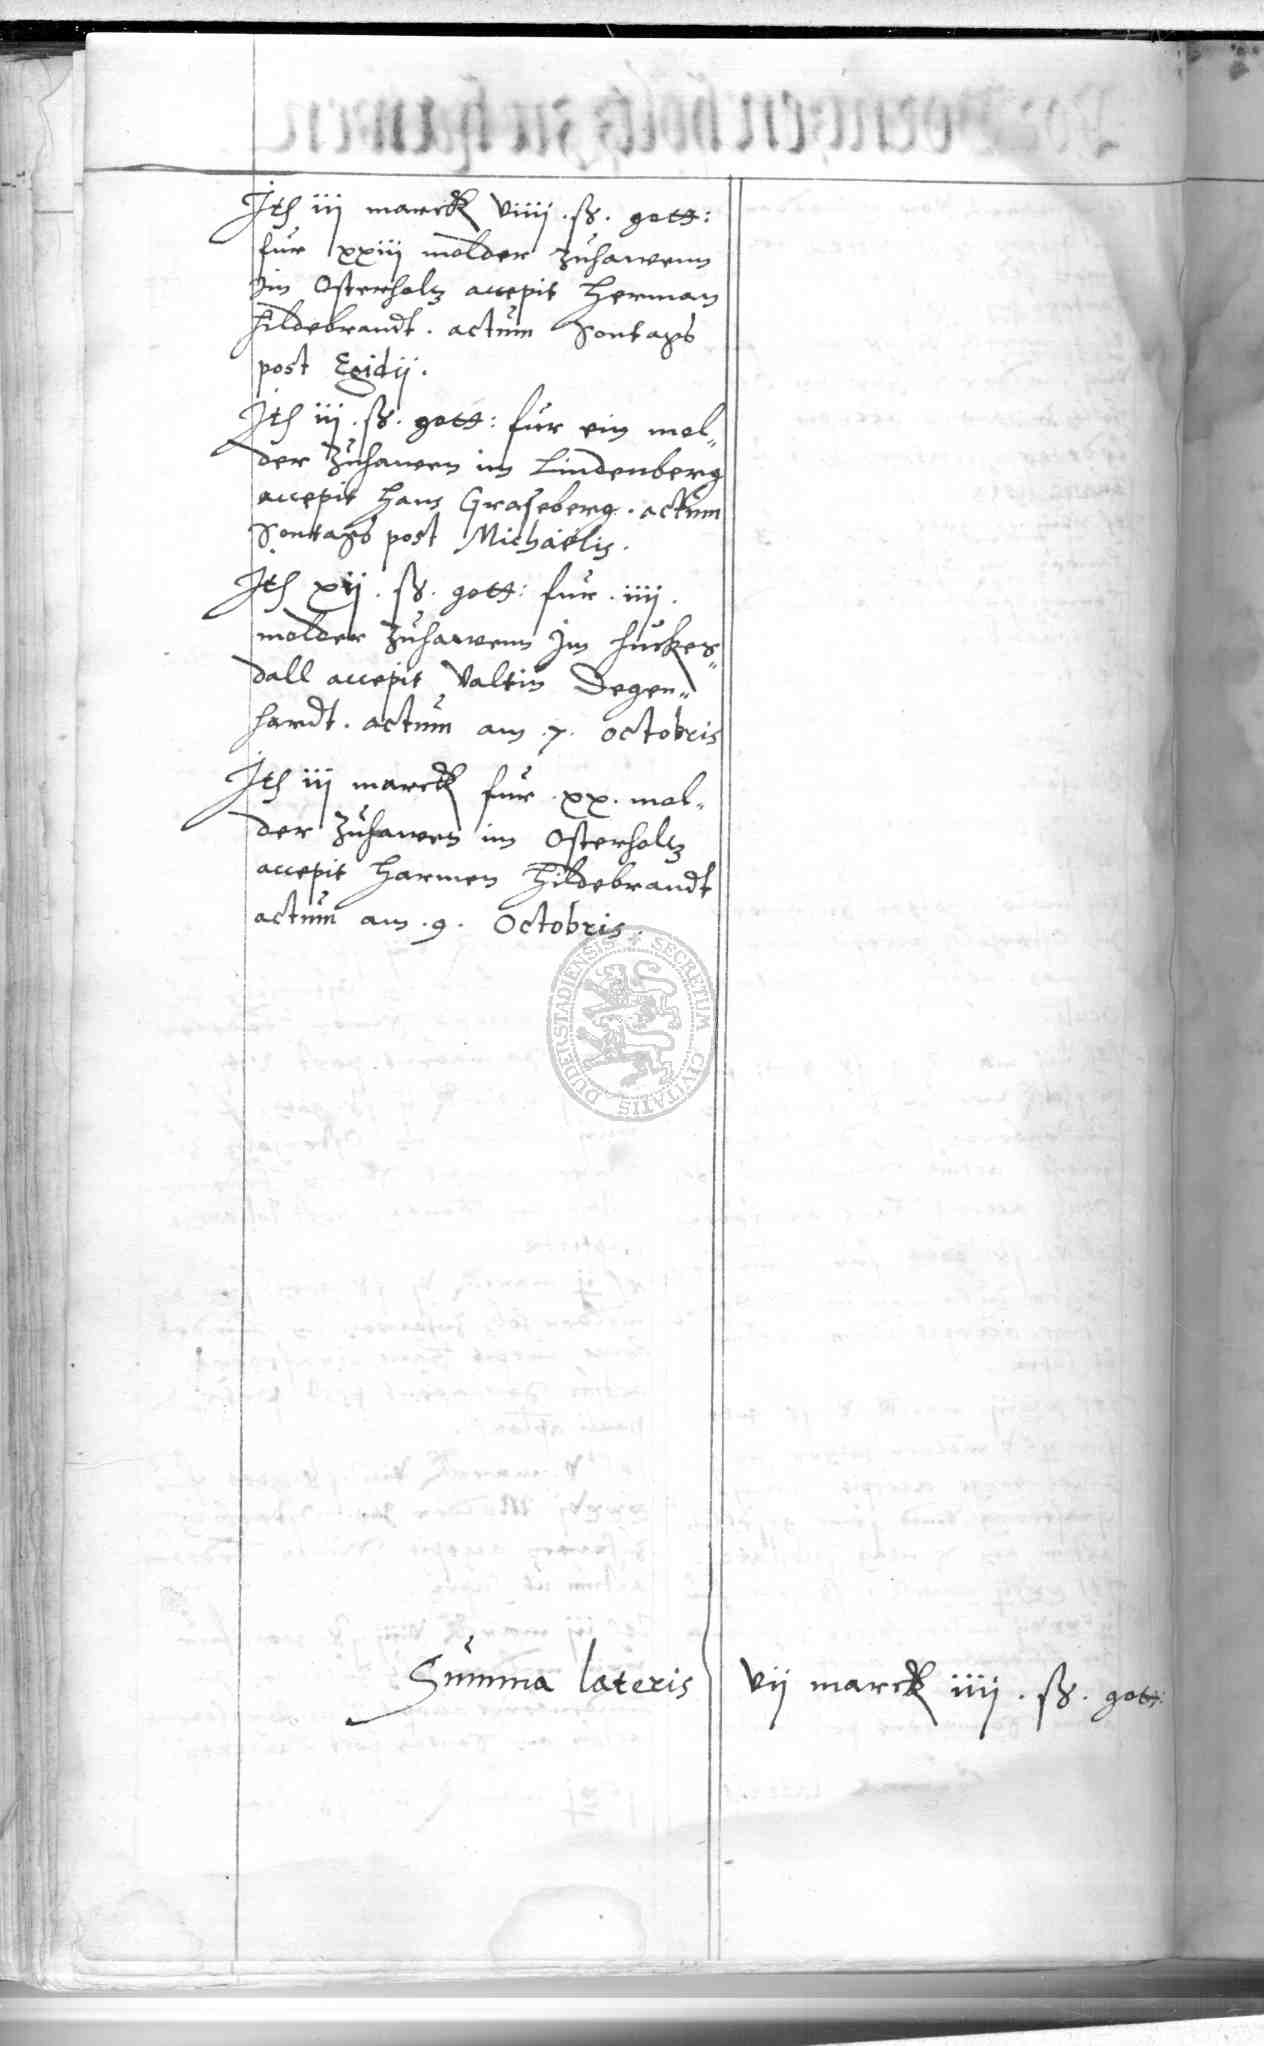 Jtem iij marck viiij . ß . gott:
fur xxiij molder zuhawenn
im Osterholtz accepit Herman
Hildebrandt . actum Sontags
post Egidij .
Jtem iij . ß . gott: fur ein mol„
der zuhawen im Lindenberg
accepit Hans Graseberg . actum
Sontags post Michaelis .
Jtem xij . ß . gott: fur . iiij .
molder zuhawenn Jm huckes„
dall accepit Valtin Degen„
hardt . actum am . 7 . octobris
Jtem iij marck fur . xx . mol„
der zuhawen im Osterholtz
accepit Harmen Hildebrandt
actum am . 9 . Octobris .
DUDERSTADIENSIS SECRETUM CIVITATIS
Summa lateris vij marck iiij . ß . gott: